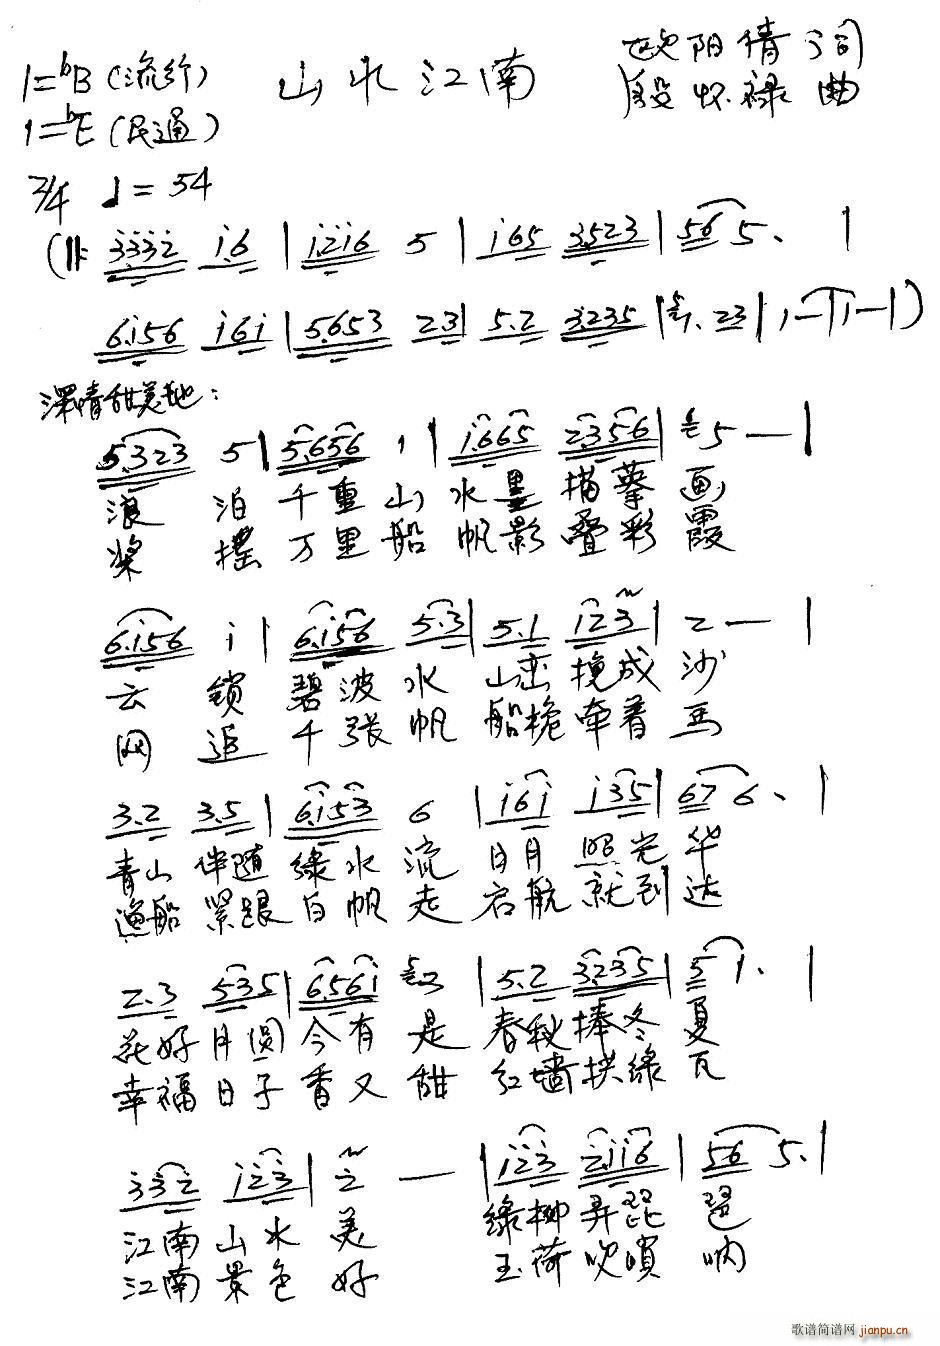 1=ᵇB(流行) 山水江南 欧阳倩词
1=ᵇE(民通) 段怀禄曲
2/4 ♩=54
(‖: 3.332 i.6 | i.2i6 5 | i65 3.523 | 56 5. |
6.i56 i6i | 5.653 2.3 | 5.2 3.235 | 1. 23 | 1 — | 1 — | )
深情甜美地:
5.323 5 | 5.656 1 | i.665 2.356 | 5 — |
浪 泊 千重山 水墨 描摹 画
桨 摇 万里船 帆影 叠彩 霞
6.i56 i | 6.i56 5.3 | 5.1 123 | 2 — |
云 锁 碧波水 山峦 挽成 沙
网 追 千张帆 船桅 牵着 马
3.2 3.5 | 6.i53 6 | i6i i35 | 67 6. |
青山 伴随 绿水 流 日月 照光 华
渔船 紧跟 白帆 走 启航 就到 达
2.3 535 | 6.56i 3 | 5.2 3.235 | 5 1. |
花好 月圆 今有 是 春秋 捧冬 夏
幸福 日子 香又 甜 红墙 拱绿 瓦
332 i23 | 2 — | i23 2.ii6 | 56 5. |
江南 山水 美 绿柳 弄琵 琶
江南 景色 好 玉荷 吹唢 呐
歌谱简谱网 jianpu.cn